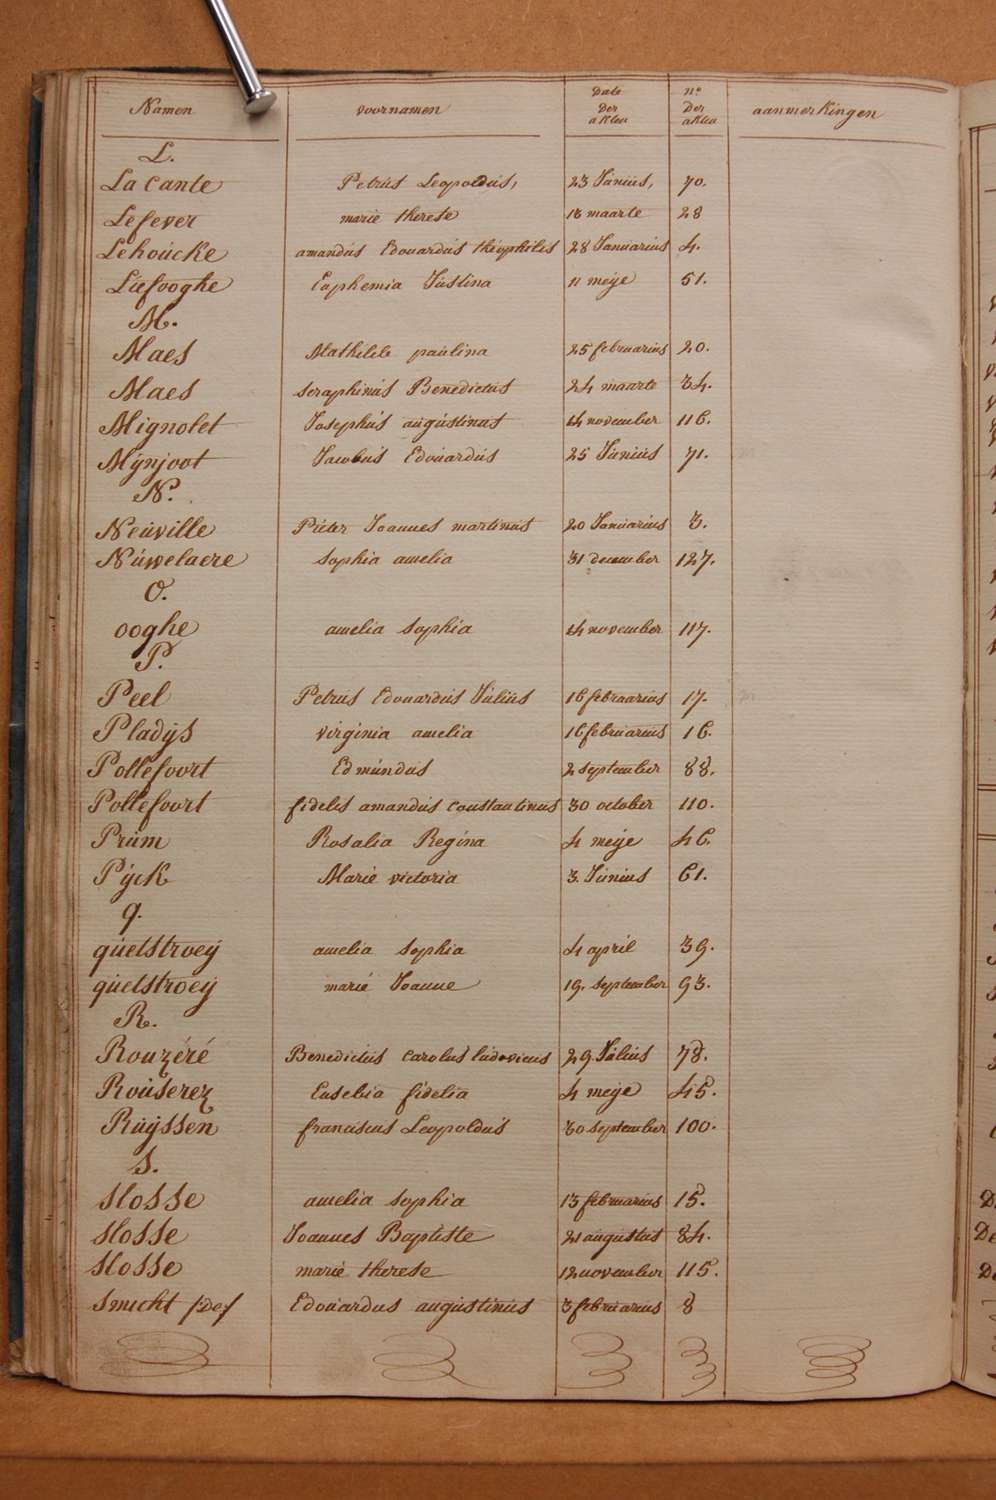 Namen voornamen Date Der aKten n° Der aKten aanmerKingen
L.
La Cante Petrús Leopoldús, 23 Júniús, 70.
Lefever marie therese 18 maarte 28
Lehoúcke amandús Edouardús théophilis 28 Januariús 4.
Liefooghe Euphemia Jústina 11 meije 51.
M.
Maes Mathilde paúlina 25 februariús 20.
Maes seraphinús Benedictús 24 maarte 34.
Mignolet Josephús augústinus 14 november 116.
Mÿnjoot Jacobús Edoúardús 25 Júniús 71.
N.
Neúville Pieter Joannes martinús 20 Janúariús 3.
Núwelaere sophia amelia 31 december 127.
O.
ooghe amelia sophia 14 november 117.
P.
Peel Petrus Edouardús Júliús 16 februariús 17.
Pladijs virginia amelia 16 februariús 16.
Pollefoort Edmúndus 2 september 88.
Pollefoort fidelis amandús constantinus 30 october 110.
Prúm Rosalia Regina 4 meije 46.
PÿcK Marie victoria 3. Június 61.
q.
qúetstroeÿ amelia sophia 4 april 39.
qúetstroeÿ marie Joanne 19. september 93.
R.
Rouzéré Benedictús carolus lúdovicus 29 Július 78.
Roúserez Eusebia fidelia 4 meije 45.
Rúÿssen franciscus Leopoldús 30 september 100.
S.
Slosse amelia sophia 13 februariús 15.
Slosse Joannes Baptiste 21 aúgústús 84.
Slosse marie therese 12 november 115.
Smicht /:De:/ Edoúardus augústinús 3 februariús 8